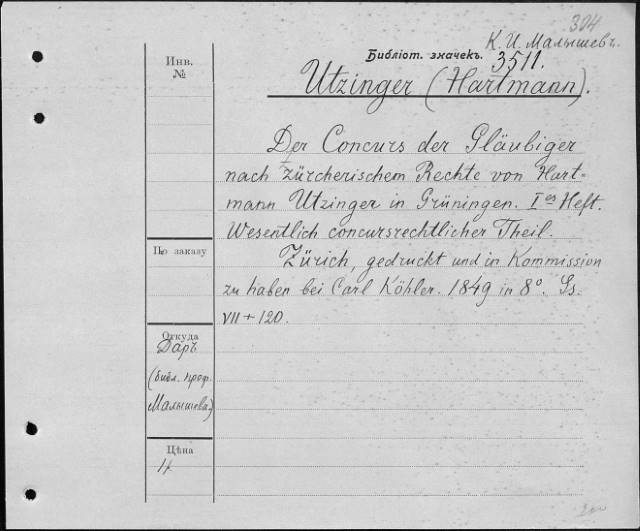 394
К. И. Малышевъ.
Библіот. значекъ. 3511.
Utzinger (Hartmann).
Инв.
№
Der Concurs der Gläubiger
nach zürcherischem Rechte von Hart-
mann Utzinger in Grüningen. I es Heft.
Wesentlich concursrechtlicher Theil.
По заказу
Zürich, gedruckt und in Kommission
zu haben bei Carl Köhler. 1849 in 8°. Ss.
VII + 120.
Откуда
Даръ
(библ. проф.
Малышева)
Цѣна